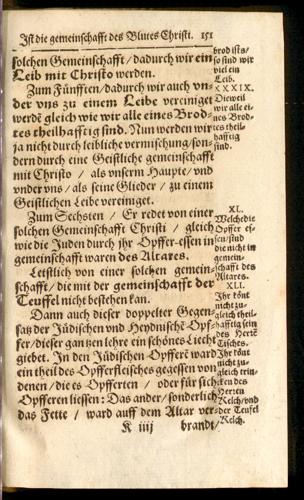 Ist die gemeinschafft des Blutes Christi. 151
solchen Gemeinschafft / dadurch wir ein
Leib mit Christo werden.
Zum Fünfften / dadurch wir auch vn-
der vns zu einem Leibe vereiniget
werdē gleich wie wir alle eines Brod-
tes theilhafftig sind. Nun werden wir
ja nicht durch leibliche vermischung / son-
dern durch eine Geistliche gemeinschafft
mit Christo / als vnserm Haupte / vnd
vnder vns / als seine Glieder / zu einem
Geistlichen Leibe vereiniget.
Zum Sechsten / Er redet von einer
solchen Gemeinschafft Christi / gleich
wie die Juden durch jhr Opffer-essen in
gemeinschafft waren des Altares.
Letstlich von einer solchen gemein-
schafft / die mit der gemeinschafft der
Teuffel nicht bestehen kan.
Dann auch dieser doppelter Gegen-
satz der Jüdischen vnd Heydnischē Opf-
fer / dieser gantzen lehre ein schönes Liecht
giebet. In den Jüdischen Opfferē ward
ein theil des Opfferfleisches gegessen von
denen / die es Opfferten / oder für sich
Opfferen liessen: Das ander / sonderlich
das Fette / ward auff dem Altar ver-
K iiij brandt /
brod ists /
so sind wir
viel ein
Leib.
XXXIX.
Dieweil
wir alle ei-
nes Brod-
tes theil-
hafftig
sind.
XL.
Welche die
Opffer es-
sen / sind
die nicht in
gemein-
schafft des
Altares.
XLI.
Jhr könt
nicht zu-
gleich theil-
hafftig sein
des Herrē
Tisches.
Jhr könt
nicht zu-
gleich trin-
cken des
Herren
Kelch / vnd
der Teufel
Kelch.